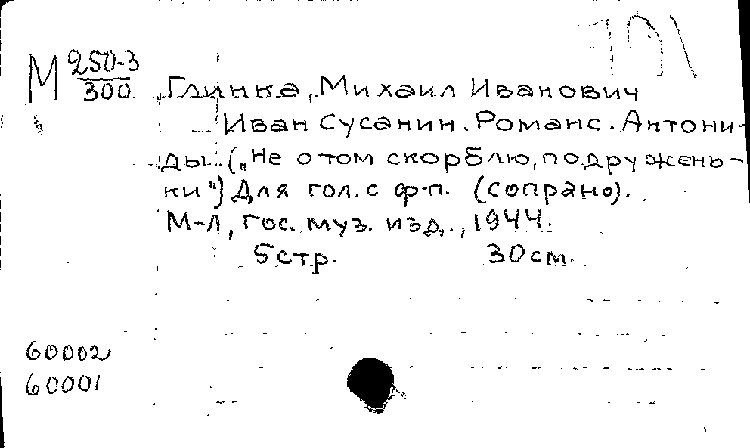 М 250-3
300
Глинка, Михаил Иванович
Иван Сусанин. Романс. Антони-
ды. („Не о том скорблю, подружень-
ки") Для гол. с ф-п. (сопрано).
М-Л, Гос. муз. изд., 1944.
5 стр. 30 см.
60002
60001